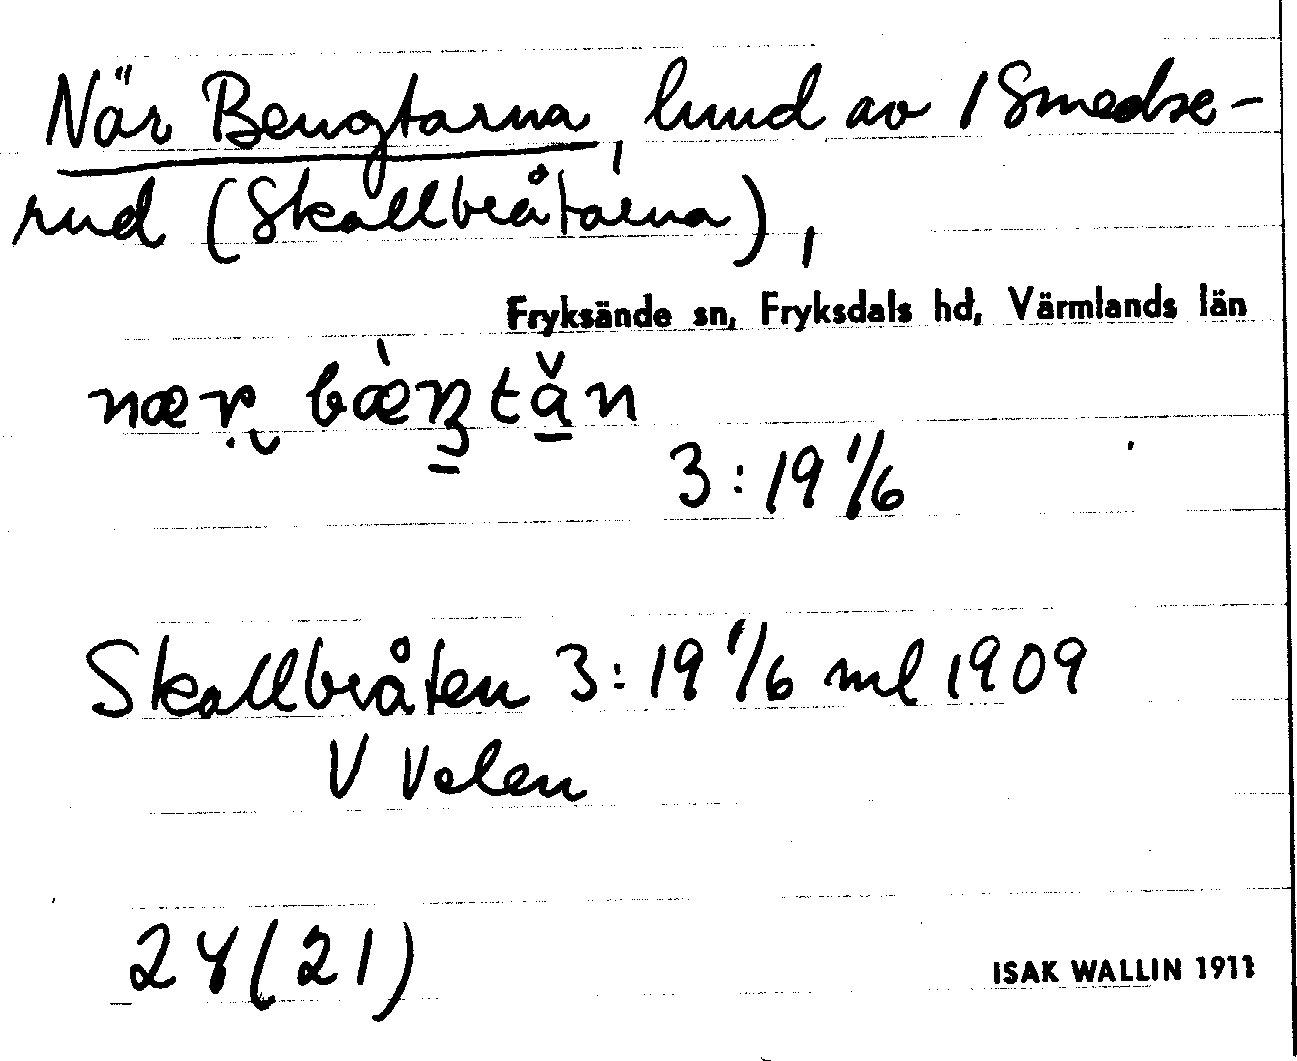 När Bengtarna, lund av 1 Smedse-
rud (Skallbråtarna),
Fryksände sn, Fryksdals hd, Värmlands län
3:19 1/6
Skallbråten 3:19 1/6 ml 1909
V Velen
24(21)
ISAK WALLIN 1911